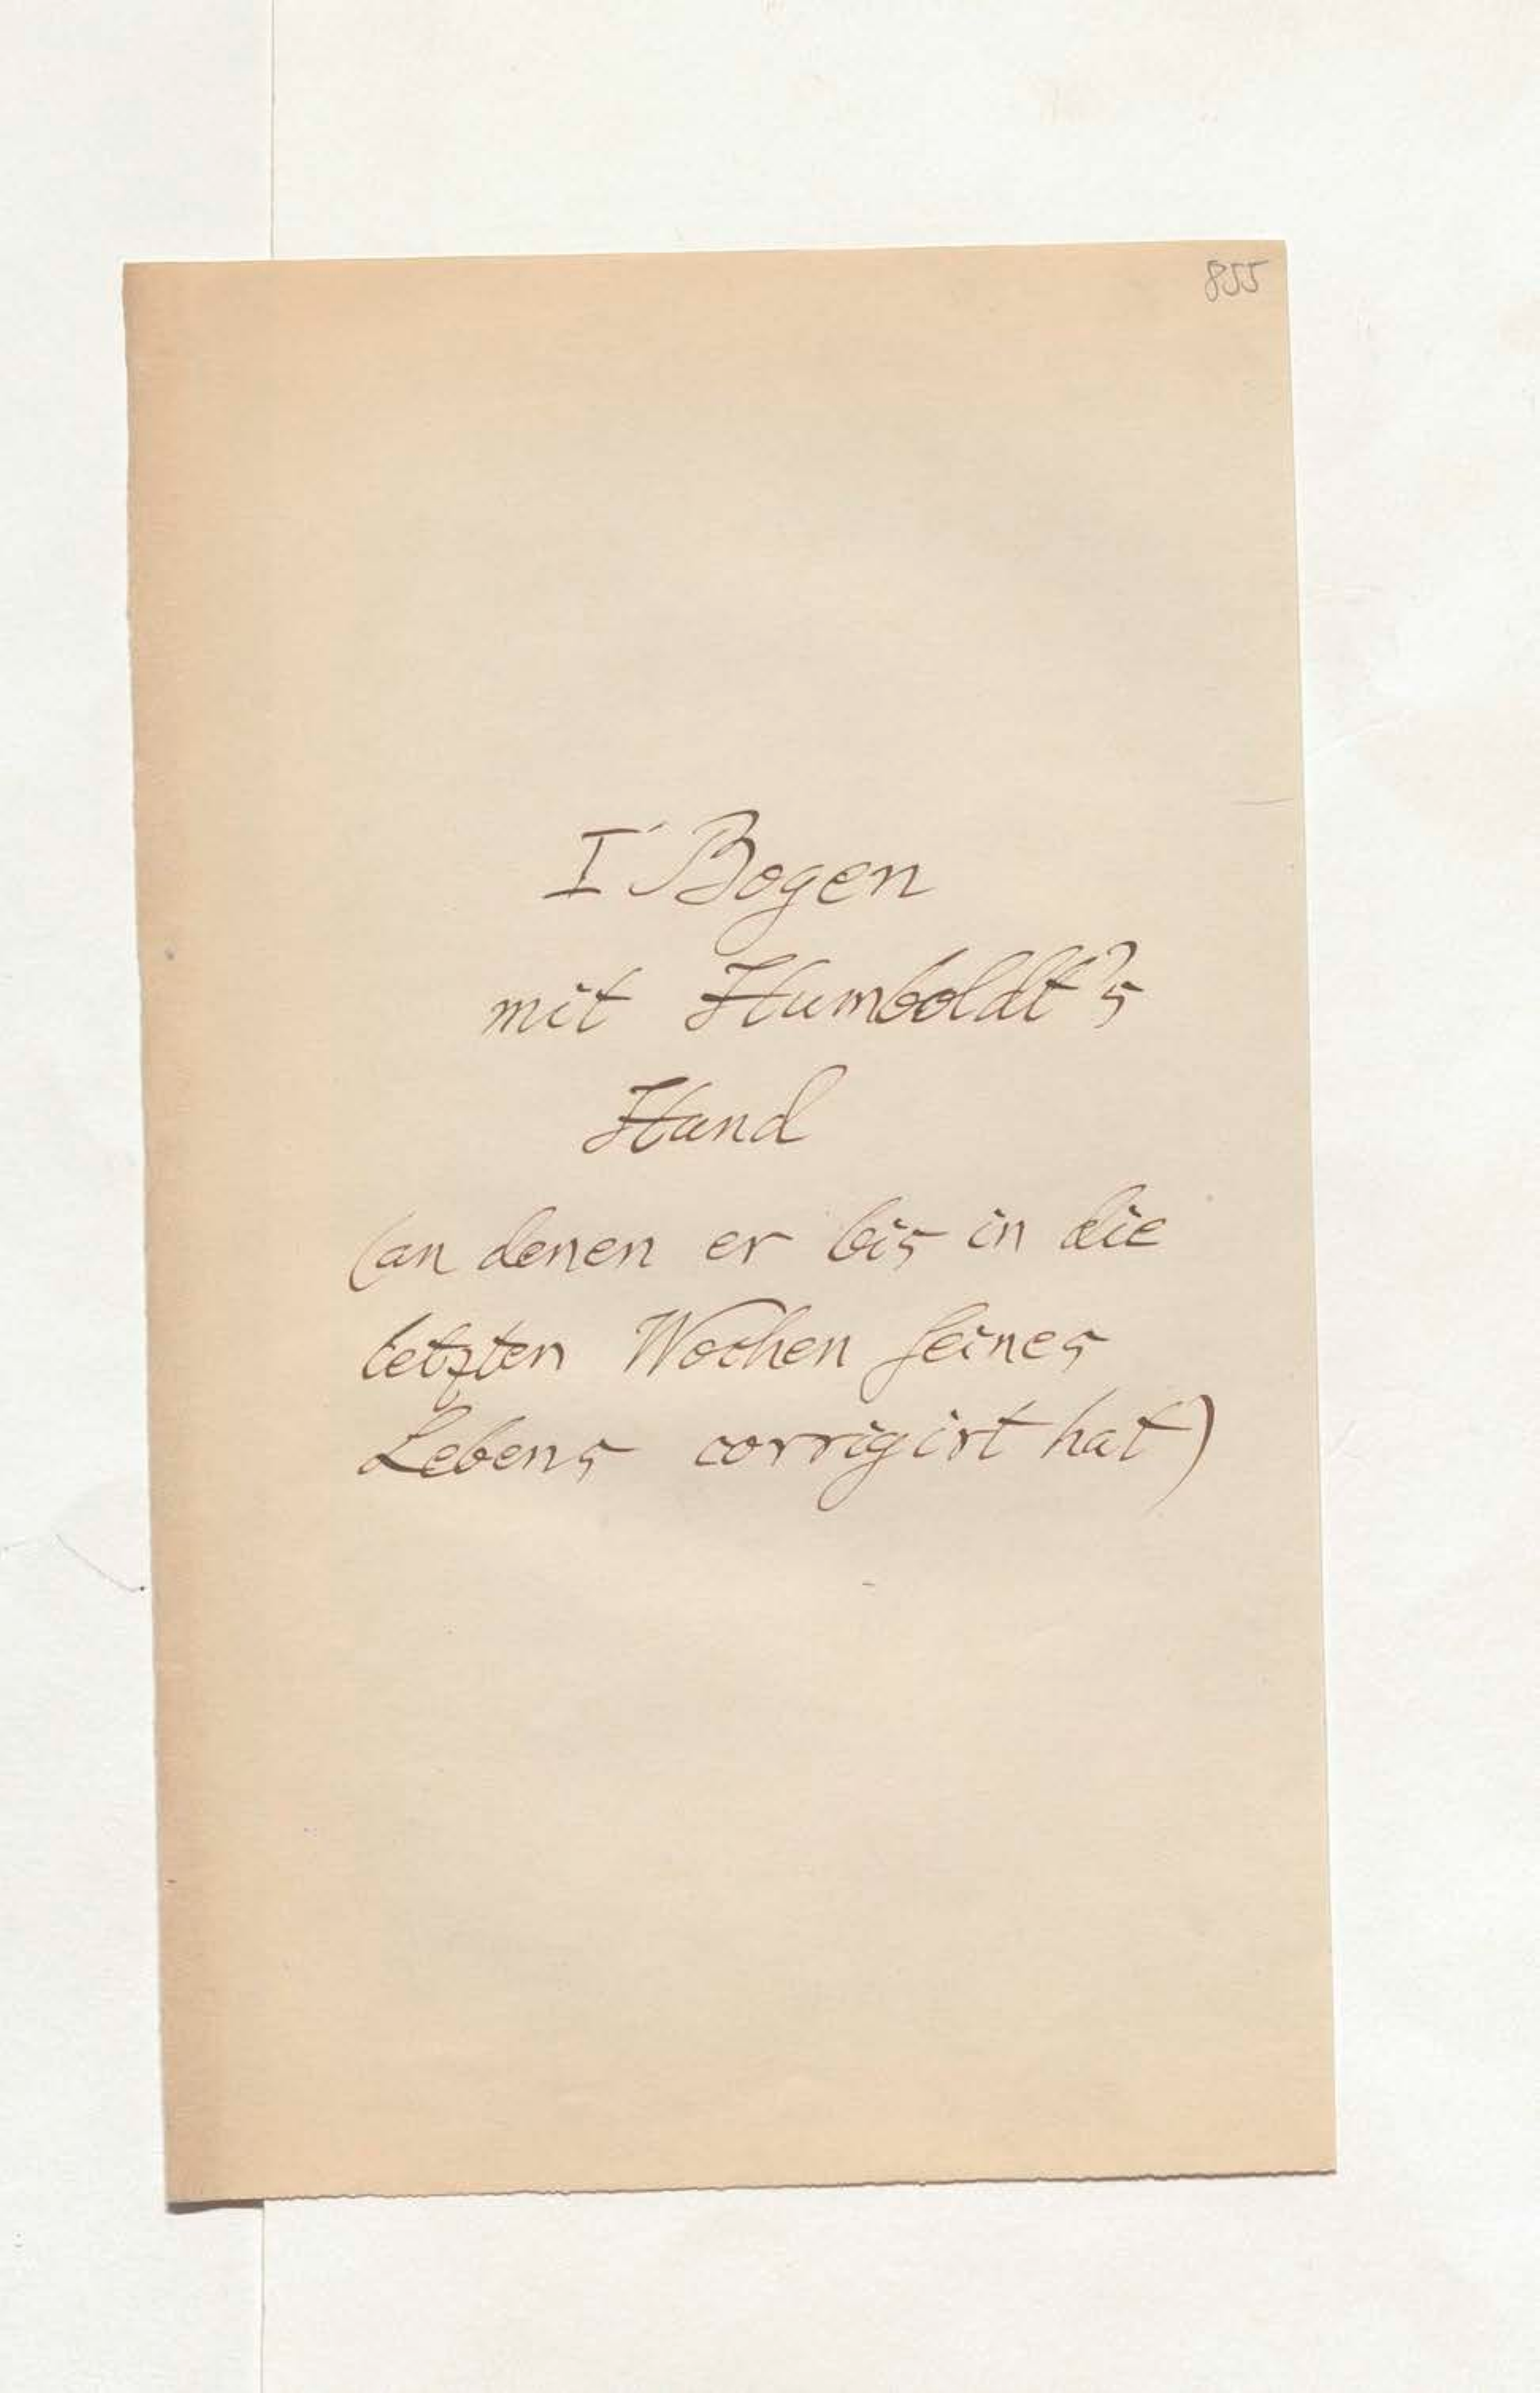 855
I Bogen
mit Humboldt's
Hand
(an denen er bis in die
letzten Wochen seines
Lebens corrigirt hat)